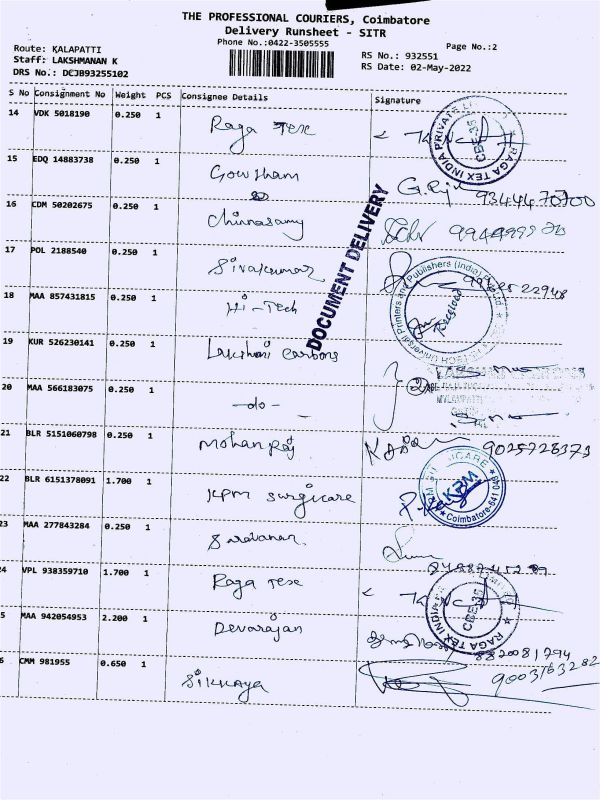 THE PROFESSIONAL COURIERS, Coimbatore
Delivery Runsheet - SITR
Phone No.:0422-3505555
Page No.:2
Route: KALAPATTI
Staff: LAKSHMANAN K
DRS No.: DCJB93255102
RS No.: 932551
RS Date: 02-May-2022
S No Consignment No Weight PCS Consignee Details Signature
14 VDK 5018190 0.250 1 Raga Tex
RAGA TEX INDIA PRIVATE LI
CBE-35
15 EDQ 14883738 0.250 1 Gowtham
16 CDM 50202675 0.250 1 Chinnasamy
17 POL 2188540 0.250 1 Sivakumar
DOCUMENT DELIVERY
18 MAA 857431815 0.250 1 Hi-Tech
Universal Printers and Publishers (India)
Received
19 KUR 526230141 0.250 1 Lakshmi Carbons
20 MAA 566183075 0.250 1 -do-
21 BLR 5151060798 0.250 1 Mohanraj
22 BLR 6151378091 1.700 1 KPM Surgicare
KRM
Coimbatore-641 048
23 MAA 277843284 0.250 1 Saravanan
24 VPL 938359710 1.700 1 Raga Tex
RAGA TEX INDIA
CBE-35
25 MAA 942054953 2.200 1 Devarajan
8820081794
26 CMM 981955 0.650 1 Sikkaya
9003163282